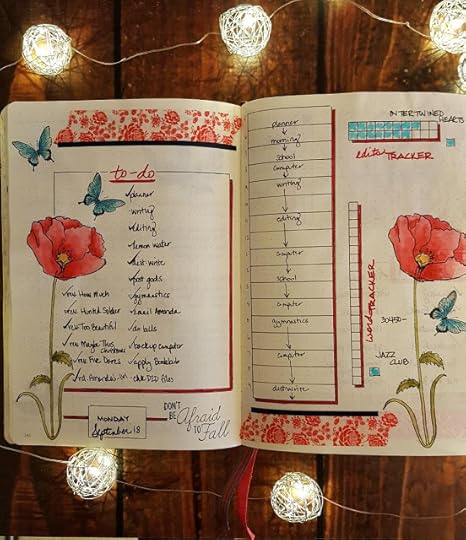 to-do
planner
writing
editing
lemon water
dest-write
post gods
gymnastics
Email Amanda
do bills
backup computer
apply Bookbub
chk DLD files
rev. How Much
rev. Hunted Soldier
rev. Too Beautiful
rev. Maybe This
Christmas
rev. Five Dares
rd. Amanda's
MONDAY
September 18
DON'T
BE Afraid
TO Fall
planner
morning
school
computer
writing
editing
computer
school
computer
gymnastics
computer
dest-write
INTERTWINED
HEARTS
edits TRACKER
word TRACKER
30x450=
JAZZ
CLUB